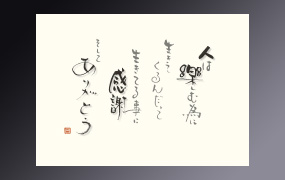 人は
楽しむ為に
生まれて
くるんだって
生きてる事に
感謝
そして
ありがとう